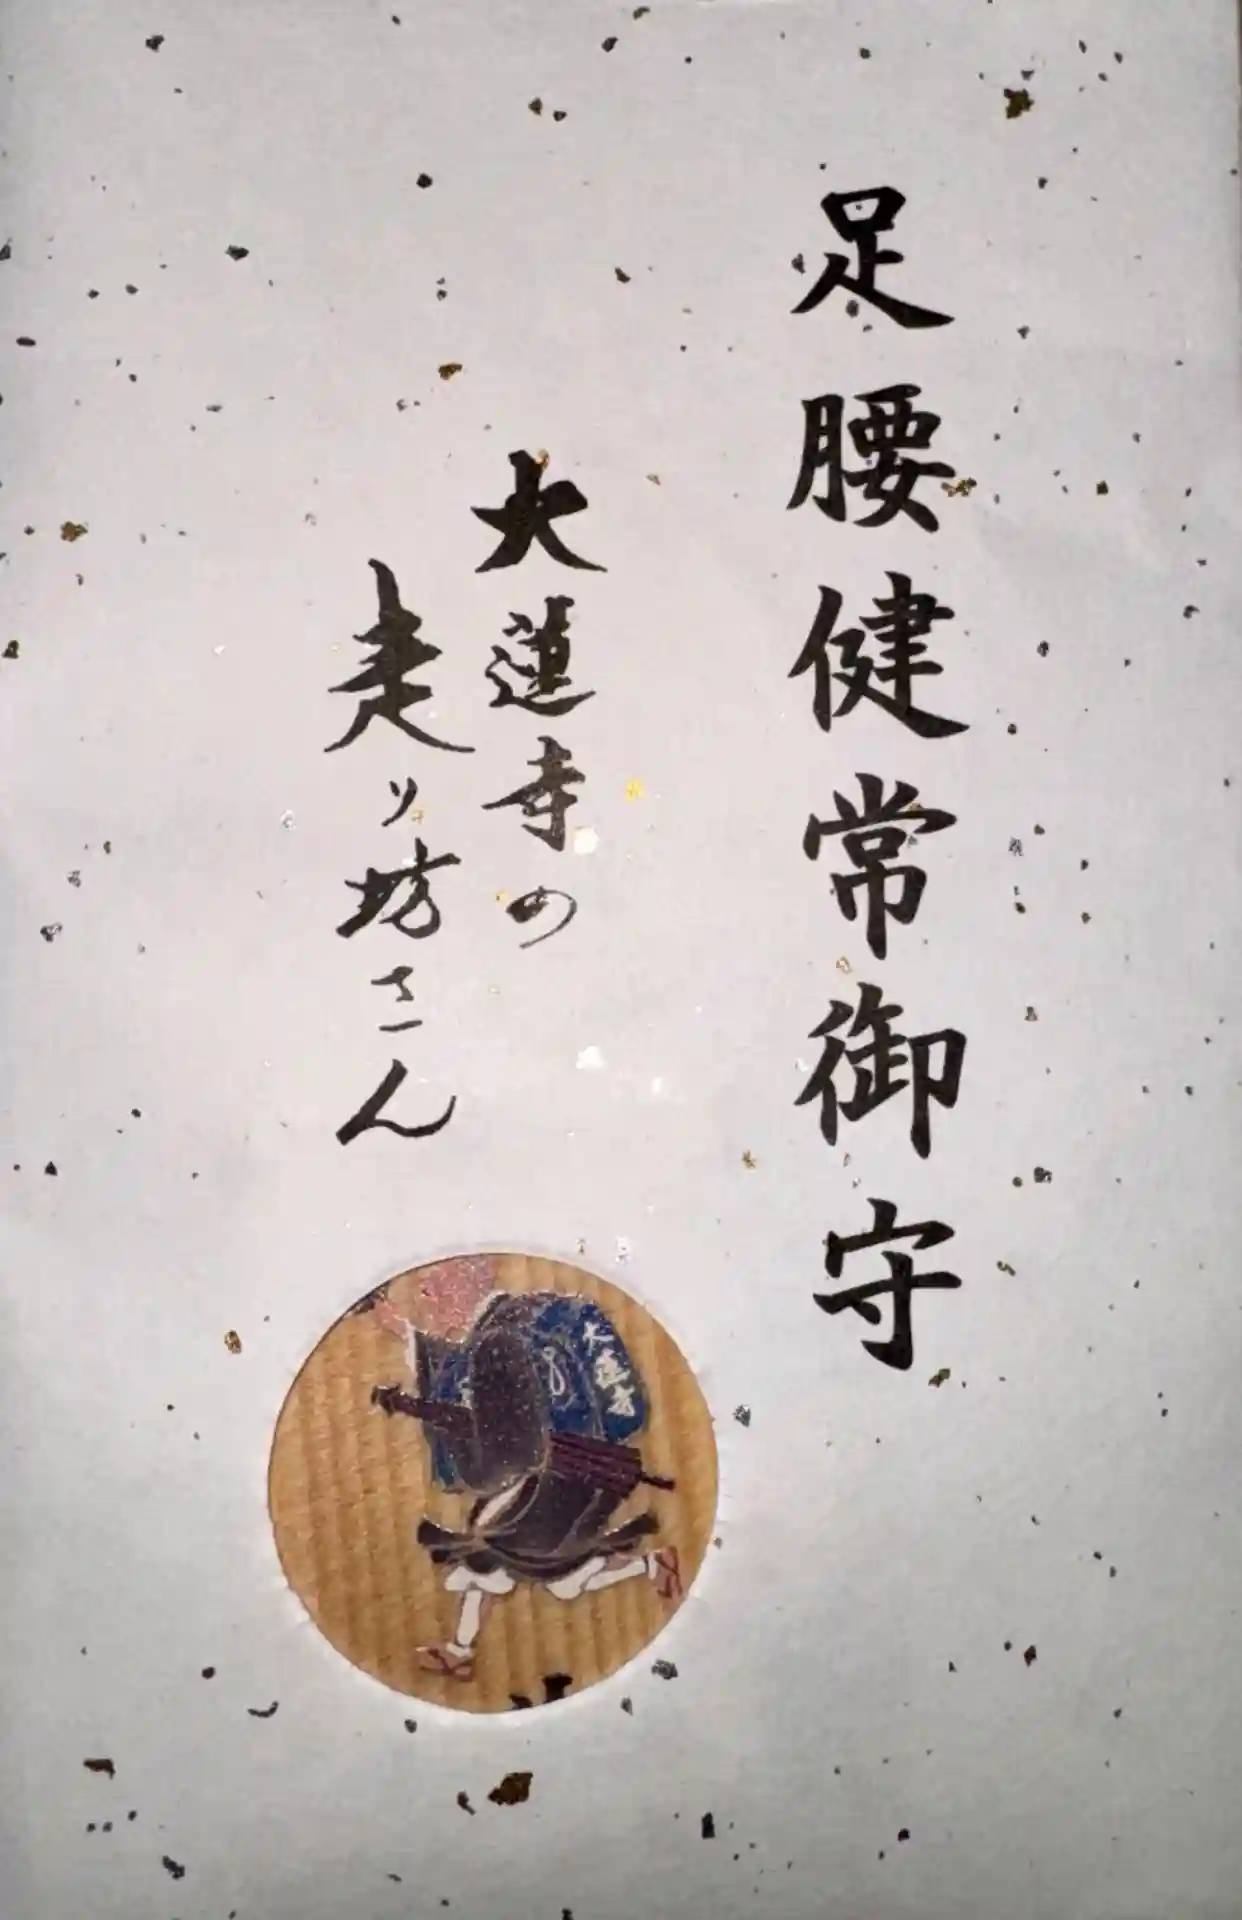 足腰健常御守
大蓮寺の
走り坊さん
大蓮寺